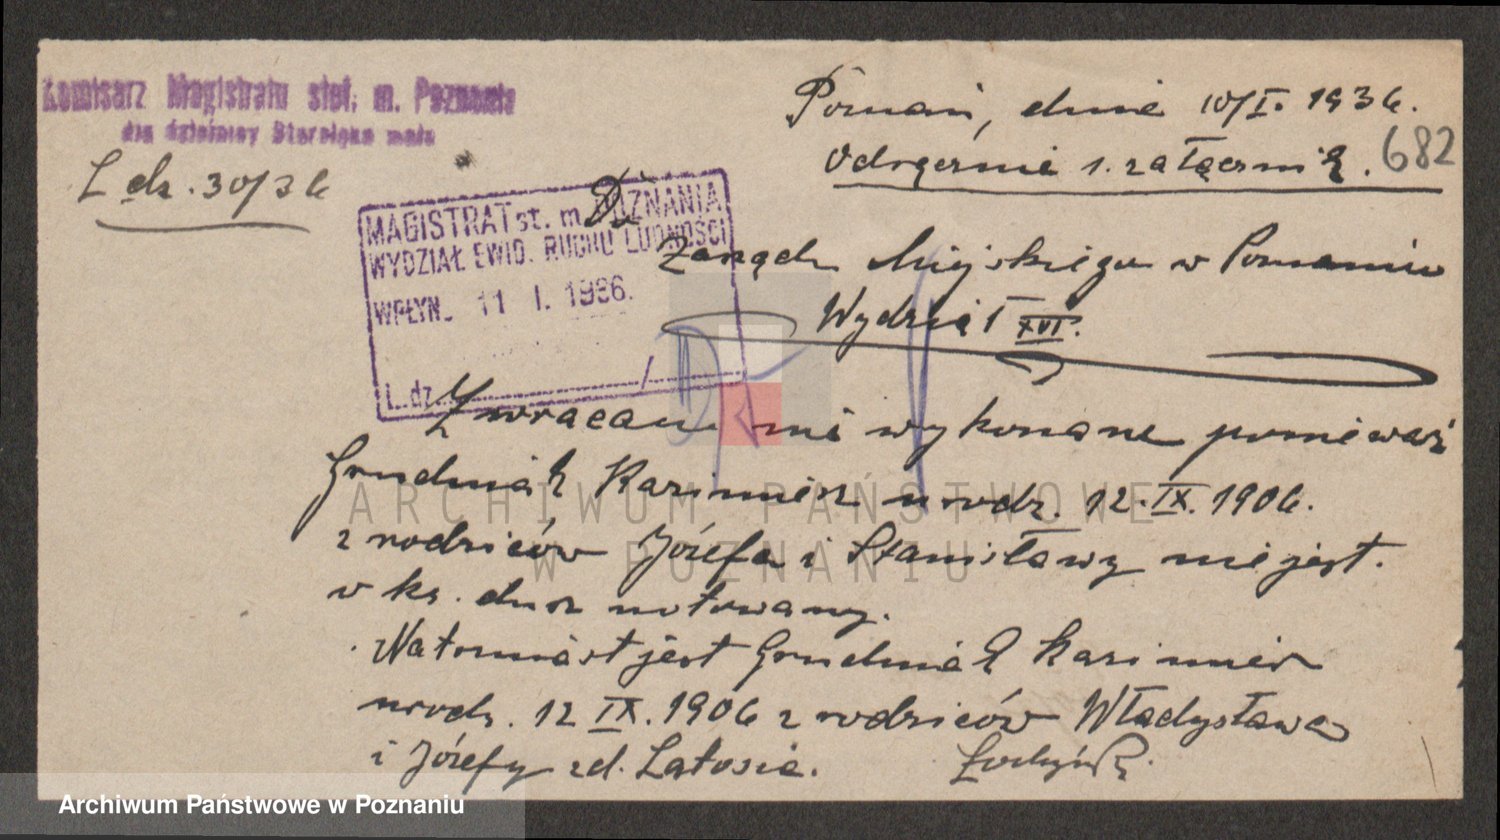 Komisarz Magistratu stoł. m. Poznania
dla dzielnicy Starołęka mała
L dz. 30/36
Poznań, dnia 10/I. 1936.
Odręcznie 1. załącznik.
682
Do
Zarządu Miejskiego w Poznaniu
Wydział XVI.
MAGISTRAT st. m. POZNANIA
WYDZIAŁ EWID. RUCHU LUDNOŚCI
WPŁYN. 11 I. 1936.
L. dz. /
Zwracam nie wykonane ponieważ
Grudniak Kazimierz urodz. 12.IX.1906.
z rodziców Józefa i Stanisławy nie jest.
w ks. dusz notowany.
Natomiast jest Grudniak Kazimierz
urodz. 12 IX. 1906 z rodziców Władysława
i Józefy zd. Latosia.
ARCHIWUM PAŃSTWOWE
W POZNANIU
Archiwum Państwowe w Poznaniu